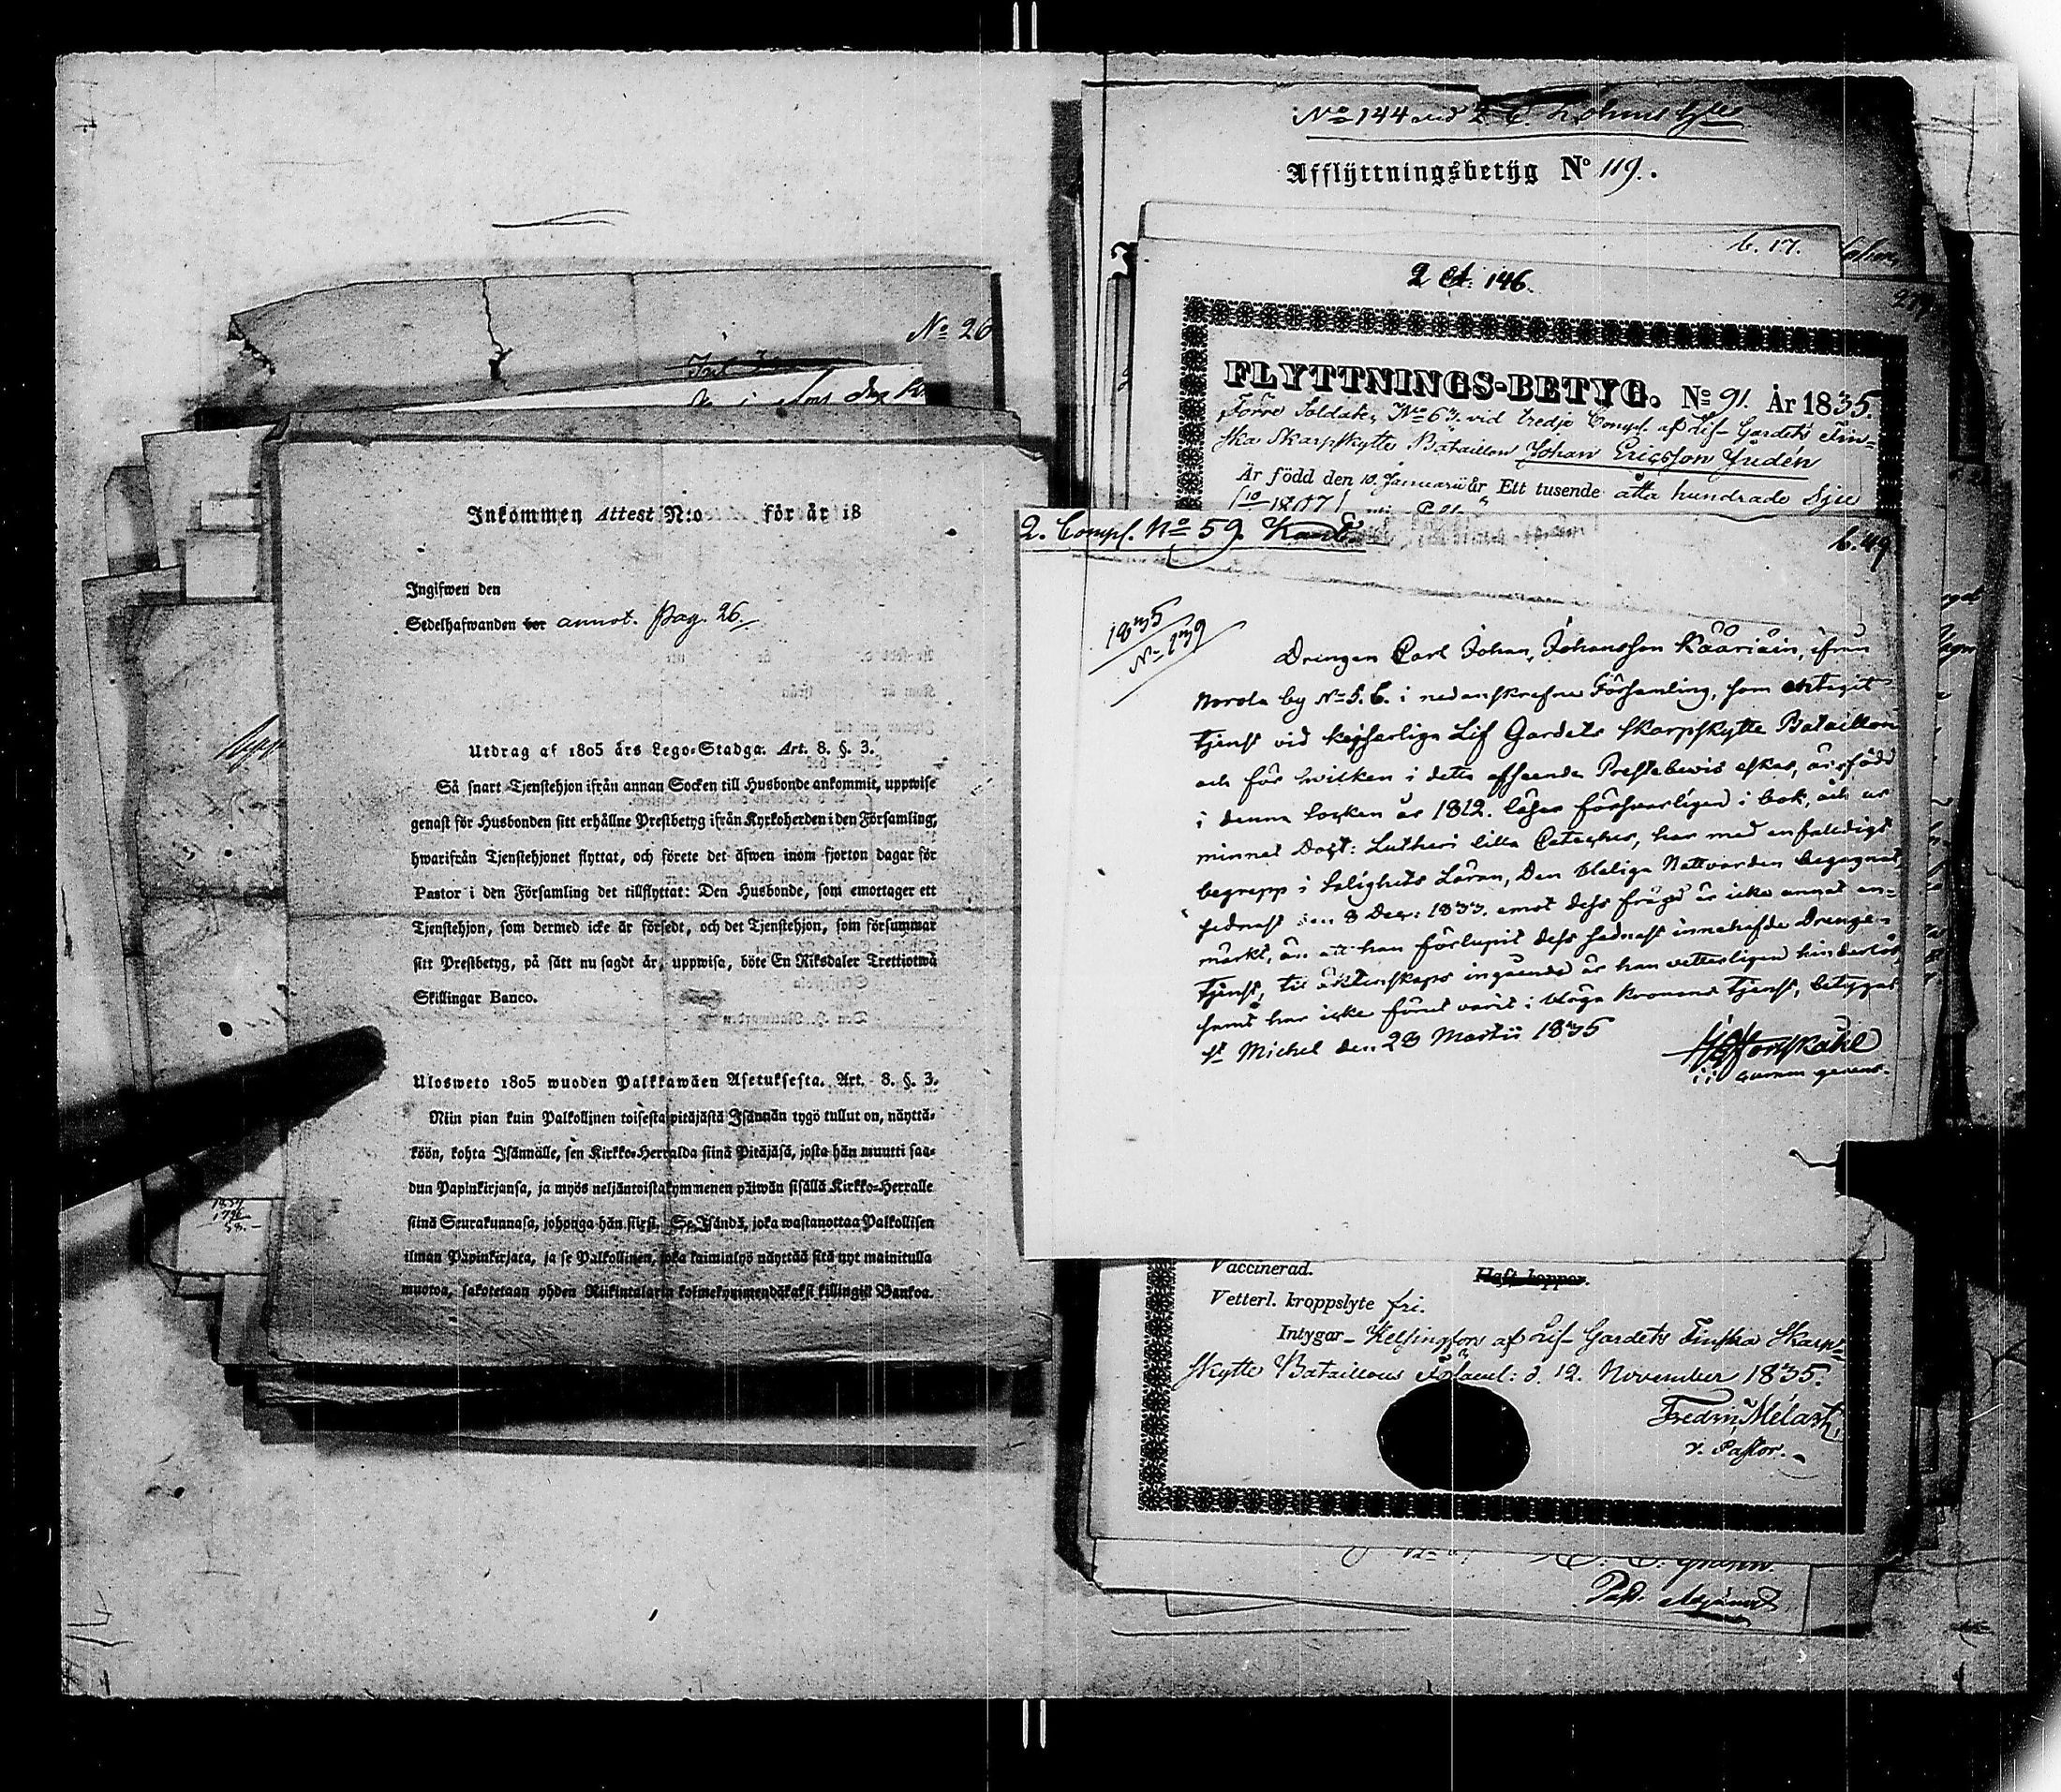 No 26
Inkommen Attest N:o för år 18
Ingifwen den
Sedelhafwanden bor annot. pag. 26.
Utdrag af 1805 års Lego-Stadga. Art. 8. §. 3.
Så snart Tjenstehjon ifrån annan Socken till Husbonde ankommit, uppwise
genast för Husbonden sitt erhållne Prestbetyg ifrån Kyrkoherden i den Församling,
hwarifrån Tjenstehjonet flyttat, och förete det äfwen inom fjorton dagar för
Pastor i den Församling det tillflyttat: Den Husbonde, som emottager ett
Tjenstehjon, som dermed icke är försedt, och det Tjenstehjon, som försummar
sitt Prestbetyg, på sätt nu sagdt är, uppwisa, böte En Riksdaler Trettiotwå
Skillingar Banco.
Ulosweto 1805 wuoden Palkkawäen Asetuksesta. Art. 8. §. 3.
Niin pian kuin Palkollinen toisesta pitäjästä Isännän tygö tullut on, näyttä-
köön, kohta Isännälle, sen Kirkko-Herralda siinä Pitäjäsä, josta hän muutti saa-
dun Papinkirjansa, ja myös neljäntoistakymmenen päiwän sisällä Kirkko-Herralle
siinä Seurakunnasa, johonga hän siirsi. Se Isändä, joka wastanottaa Palkollisen
ilman Papinkirjata, ja se Palkollinen, joka laiminlyö näyttää sitä nyt mainitulla
muotoa, sakotetaan yhden Riikintalarin kolmekymmendäkaksi killingiä Bankoa.
No 144 vid
Afflyttningsbetyg No 119.
b. 17.
2 Ct. 146.
FLYTTNINGS-BETYG. No 91. År 1835.
Förre Soldaten No 63. vid tredje Comp. af Lif-Gardets Fin-
ska Skarpskytte Bataillon Johan Ericsson
Är född den 10 Januarii år Ett tusende åtta hundrade sju
2. Comp. No 59.
b. 49
1835
No 139
Drengen Carl Johan Johansson Kääriäin, ifrån
Norola by No 5. 6. i nedanskrefne Församling, som antagit
tjenst vid kejserliga Lif Gardets Skarpskytte Bataillon
och för hwilken i detta afseende Prestebevis äskas, är född
i denna socken år 1812. läser försvarligen i bok, och ur
minnet Doct: Lutheri lilla Cateches, har med enfaldigt
begrepp i Salighets Läran, Den Heliga Nattvarden begagnat
sednast den 8 Dec: 1833. emot dess frägd är icke annat an-
märkt, än att han förlupit dess sednast innehafde Drenge-
tjenst, til äktenskaps ingående är han vetterligen hinderlös,
samt har icke förut varit i Höga Kronans tjenst, betygas
St Michel den 28 Martii 1835
Vaccinerad. Haft koppor.
Vetterl. kroppslyte fri.
Intygar_ Helsingfors af Lif-Gardets Finska Skarp-
skytte Bataillons d. 12. November 1835.
v. Pastor.